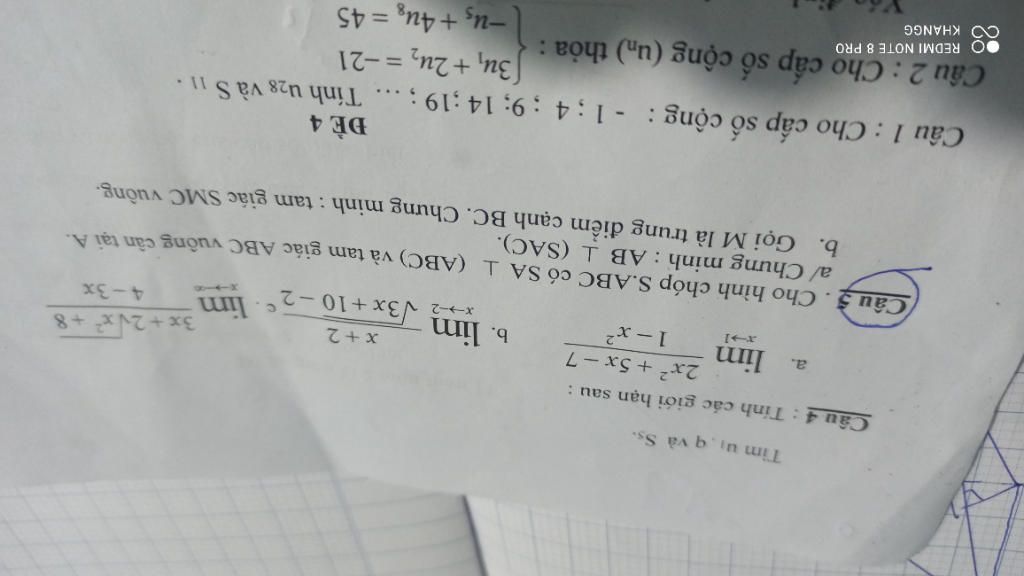 Tìm u₁, q và S₅.
Câu 4 : Tính các giới hạn sau :
a. lim x→1 (2x² + 5x − 7)/(1 − x²) b. lim x→−2 (x + 2)/(√(3x + 10) − 2) c. lim x→−∞ (3x + 2√(x² + 8))/(4 − 3x)
Câu 5 . Cho hình chóp S.ABC có SA ⊥ (ABC) và tam giác ABC vuông cân tại A.
a/ Chưng minh : AB ⊥ (SAC).
b. Gọi M là trung điểm cạnh BC. Chưng minh : tam giác SMC vuông.
ĐỀ 4
Câu 1 : Cho cấp số cộng : - 1 ; 4 ; 9; 14 ;19 ; … Tính u₂₈ và S ₁₁ .
Câu 2 : Cho cấp số cộng (uₙ) thỏa : { 3u₁ + 2u₂ = −21
−u₅ + 4u₈ = 45
REDMI NOTE 8 PRO
KHANGG